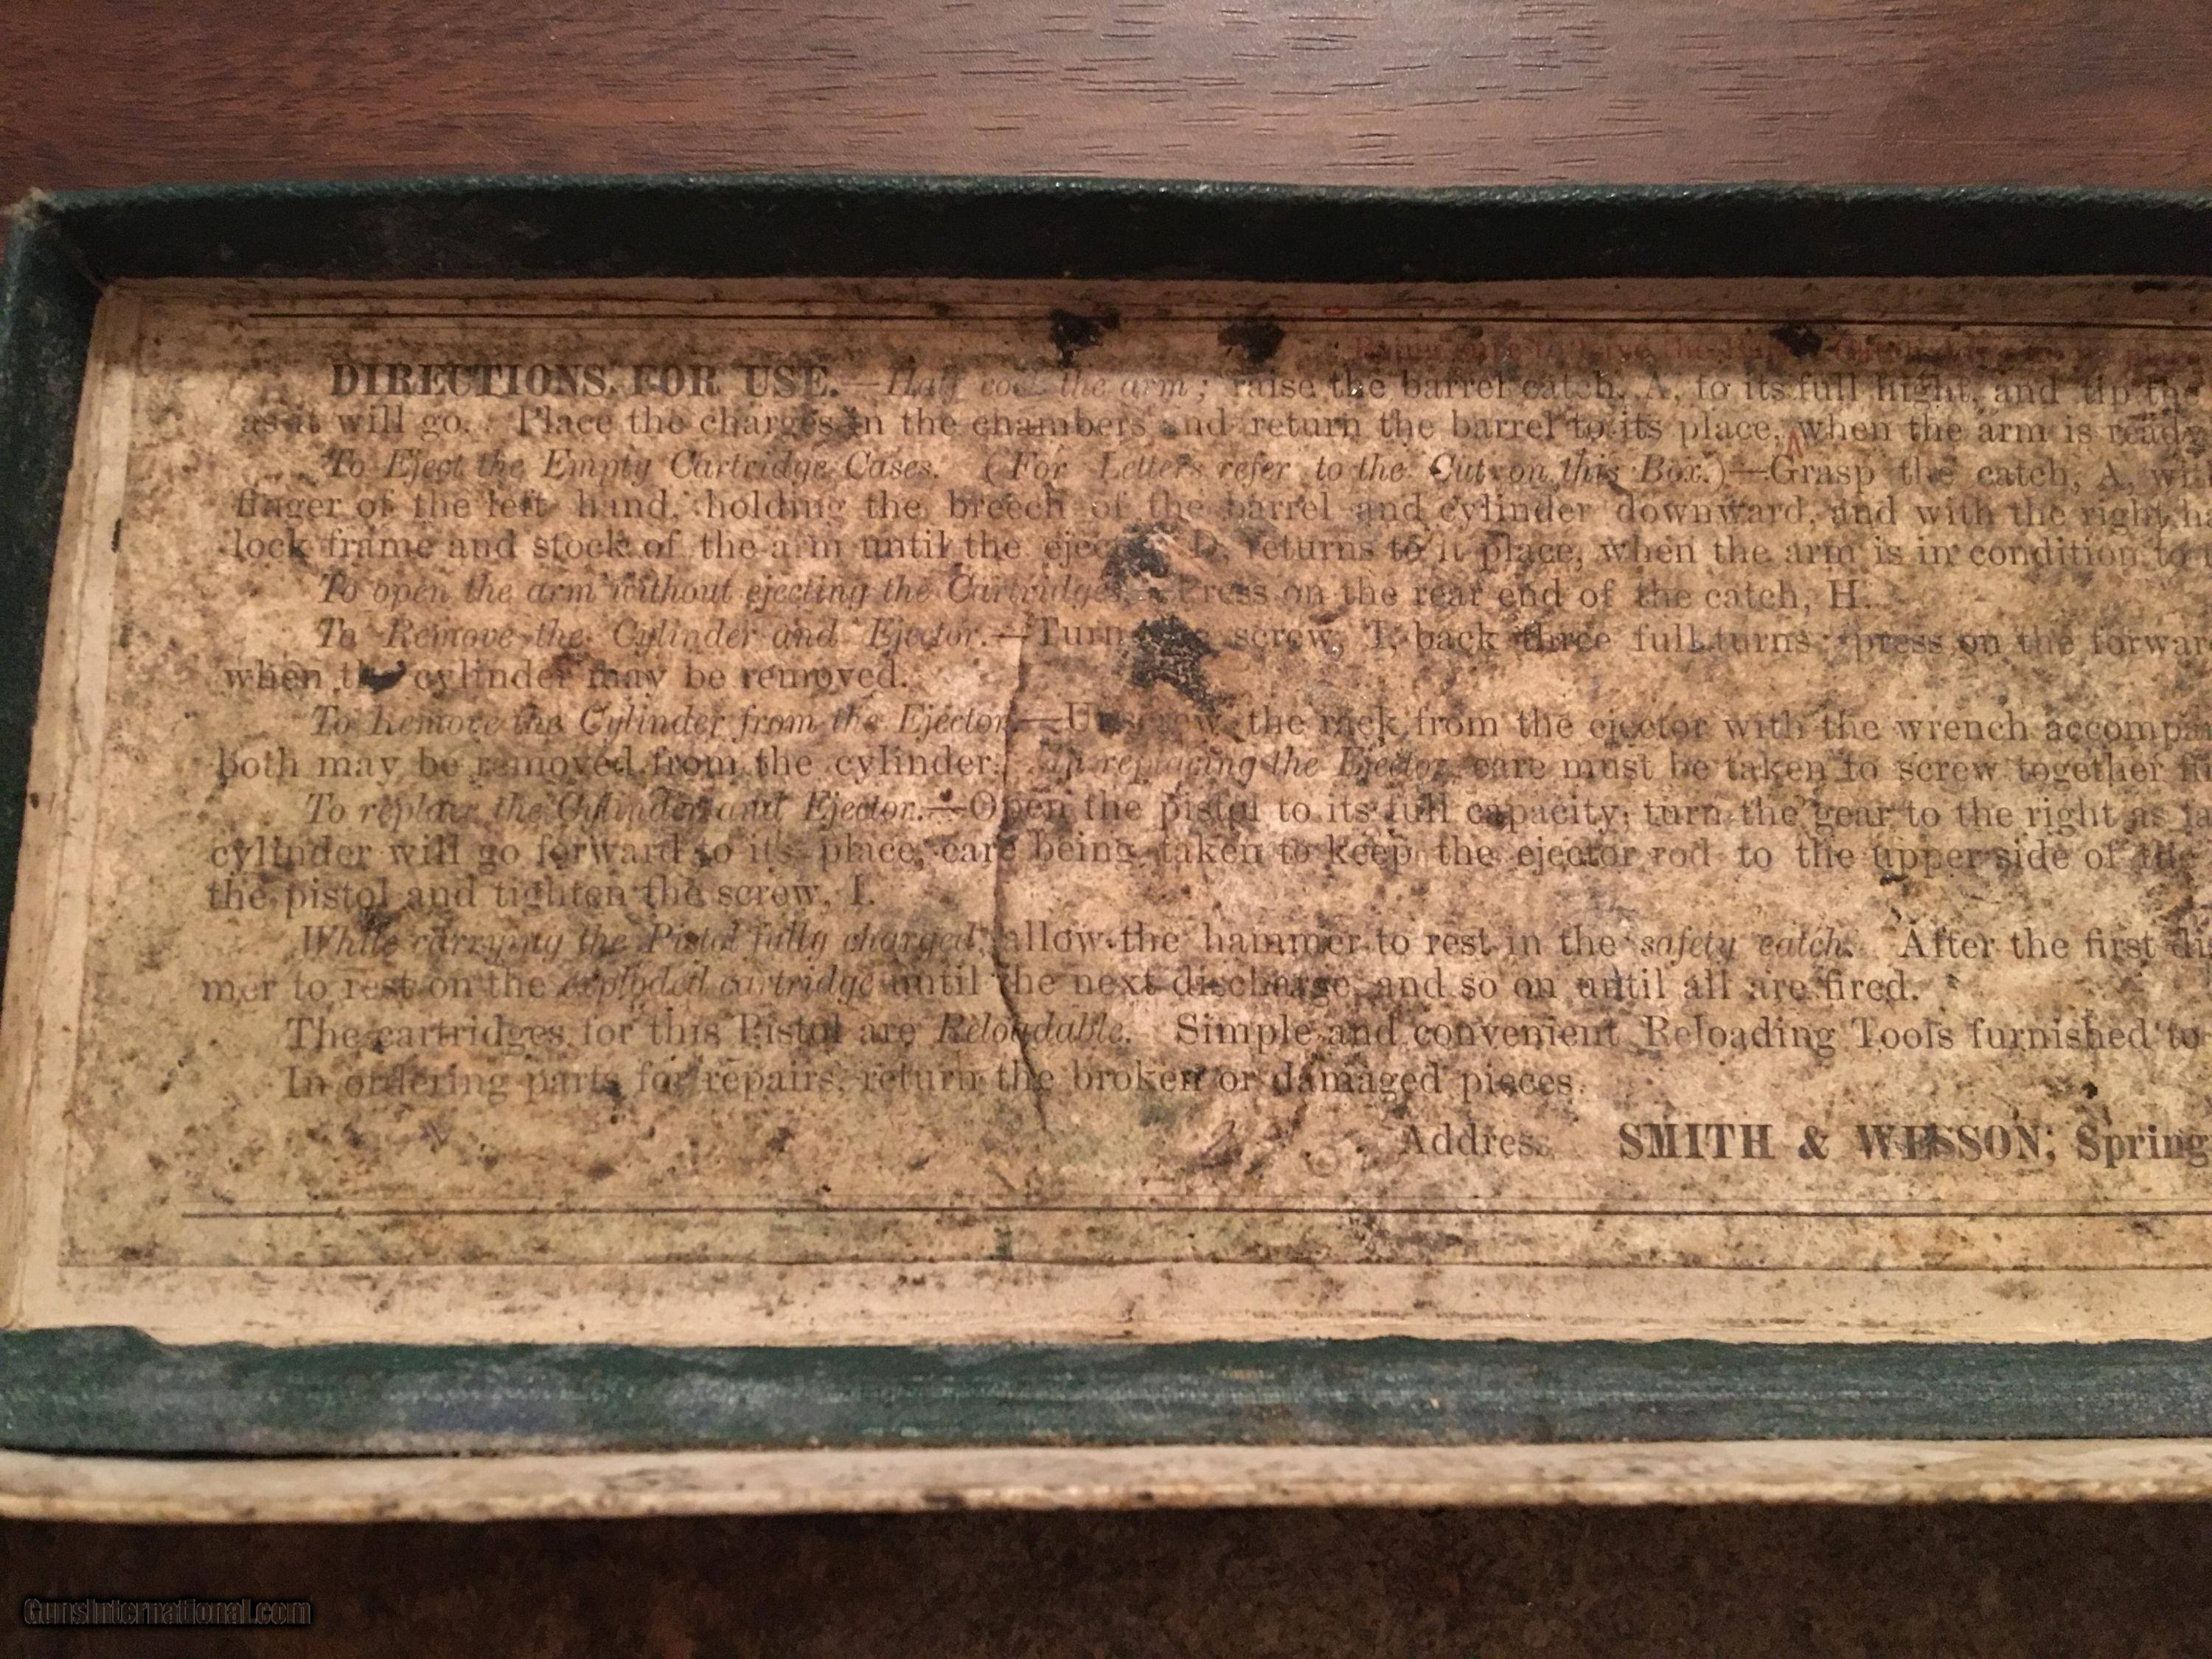 DIRECTIONS FOR USE.—Half cock the arm; raise the barrel catch, A, to its full hight, and tip the
as it will go. Place the charges in the chambers and return the barrel to its place, when the arm is ready
To Eject the Empty Cartridge Cases. (For Letters refer to the Cut on this Box.)—Grasp the catch, A, wi
finger of the left hand, holding the breech of the barrel and cylinder downward, and with the right h
lock frame and stock of the arm until the D, returns to it place, when the arm is in condition to
To open the arm without ejecting the Cartridges, Press on the rear end of the catch, H.
To Remove the Cylinder and Ejector.—Turn screw, back three full turns; press on the forwar
when the cylinder may be removed.
To Remove the Cylinder from the Ejector.—Unscrew the rack from the ejector with the wrench accompa
both may be removed from the cylinder. In replacing the Ejector, care must be taken to screw together
To replace the Cylinder and Ejector.—Open the pistol to its full capacity; turn the gear to the right as fa
cylinder will go forward to its place, care being taken to keep the ejector rod to the upper side of the
the pistol and tighten the screw, I.
While carrying the Pistol fully charged, allow the hammer to rest in the safety catch. After the first di
mer to rest on the exploded cartridge until the next discharge, and so on until all are fired.
The cartridges for this Pistol are Reloadable. Simple and convenient Reloading Tools furnished to
In ordering parts for repairs, return the broken or damaged pieces.
Address SMITH & WESSON, Spring
GunsInternational.com